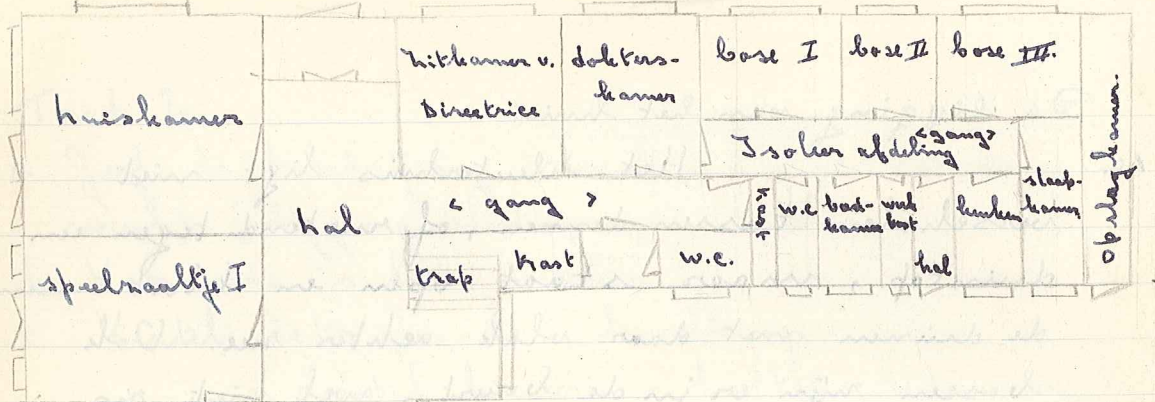 huiskamer
zitkamer v.
Directrice
dokters-
kamer
boxe I
boxe II
boxe III.
Isoleer afdeling <gang>
opslagkamer.
hal
< gang >
kast
w.c
bad-
kamer
werk
kast
keuken
slaap-
kamer
hal
speelzaaltje I
trap
kast
w.c.